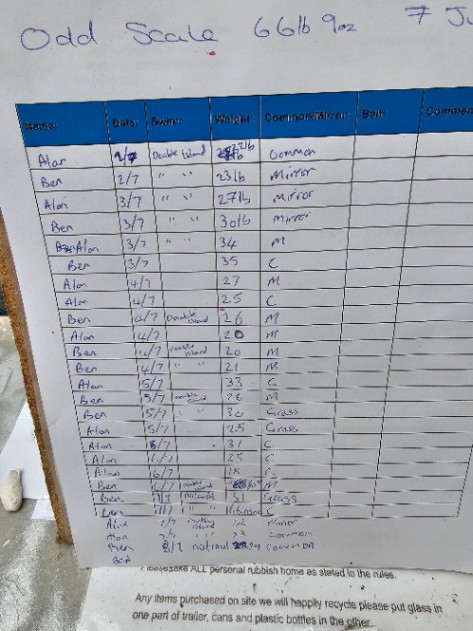 Odd Scale 66lb 9oz 7 Ju
Name: Date: Swim: Weight: Common/Mirror: Bait: Commen
Alan 2/7 Double Island 22lb Common
Ben 2/7 " " 23lb Mirror
Alan 3/7 " " 27lb Mirror
Ben 3/7 " " 30lb Mirror
Alan 3/7 " " 34 M
Ben 3/7 35 C
Alan 4/7 27 M
Alan 4/7 25 C
Ben 4/7 Double Island 26 M
Alan 4/7 20 M
Ben 4/7 Double Island 20 M
Ben 4/7 " " 21 M
Alan 5/7 33 C
Ben 5/7 Double Island 26 M
Ben 5/7 " " 30 Grass
Alan 5/7 25 Grass
Alan 6/7 31 C
Alan 6/7 25 C
Alan 6/7 C
Ben Double Island M
Ben 7/7 31 Grass
Ben 7/7 " " C
Alan 7/7 Mirror
Alan 7/7 Common
Ben 8/7 Common
Please take ALL personal rubbish home as stated in the rules.
Any items purchased on site we will happily recycle please put glass in
one part of trailer, cans and plastic bottles in the other.